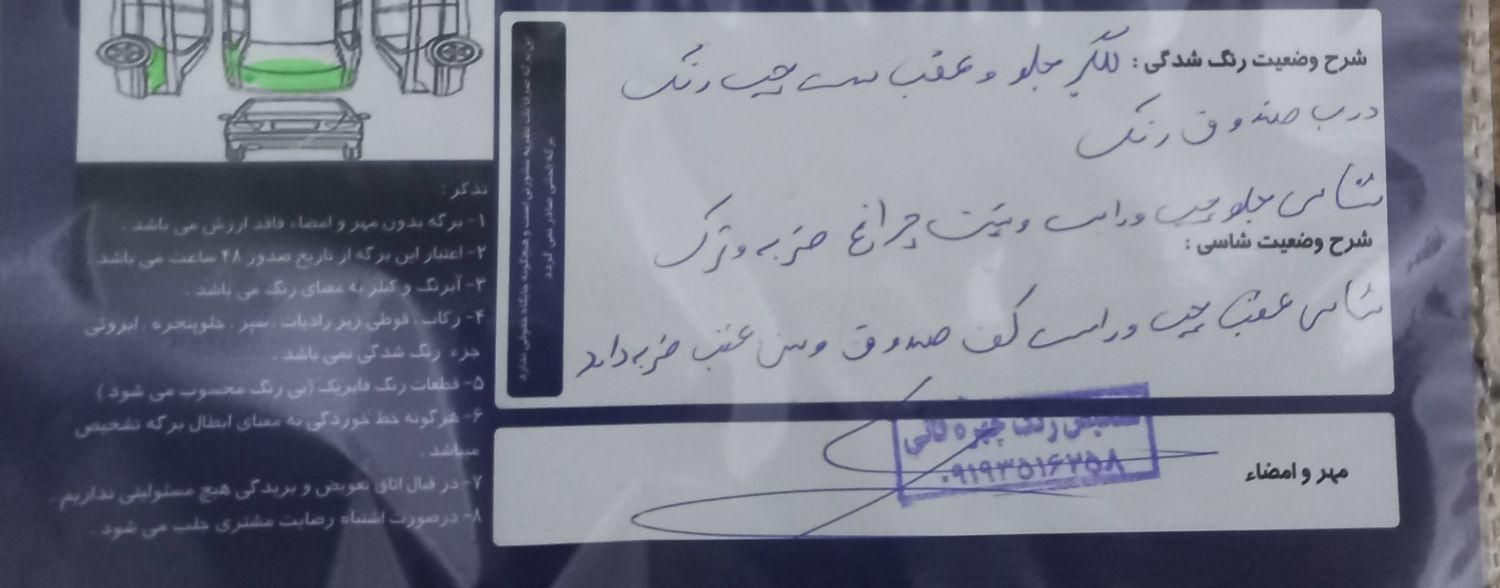 شرح وضعیت رنگ شدگی : گلگیر جلو و عقب سمت چپ رنگ
درب صندوق رنگ
شاسی جلو چپ و راست و پشت چراغ ضربه و ترک
شرح وضعیت شاسی :
شاسی عقب چپ و راست کف صندوق و سینی عقب ضربه دارد
مهر و امضاء
رنگ چهره قانی
۰۹۱۹۳۵۱۶۲۵۸
این برگه صرفا یک نظریه مشورتی است و هیچگونه جایگاه حقوقی ندارد
برگه المثنی صادر نمی گردد
تذکر :
۱- برگه بدون مهر و امضاء فاقد ارزش می باشد .
۲- اعتبار این برگه از تاریخ صدور ۴۸ ساعت می باشد .
۳- آبرنگ و کیلر به معنای رنگ می باشد .
۴- رکاب ، قوطی زیر رادیات ، سپر ، جلوپنجره ، ابروئی
جزء رنگ شدگی نمی باشد
۵- قطعات رنگ فابریک (بی رنگ محسوب می شود )
۶- هرگونه خط خوردگی به معنای ابطال برگه تشخیص
میباشد .
۷- در قبال اتاق تعویض و بریدگی هیچ مسئولیتی نداریم .
۸- درصورت اشتباه رضایت مشتری جلب می شود .